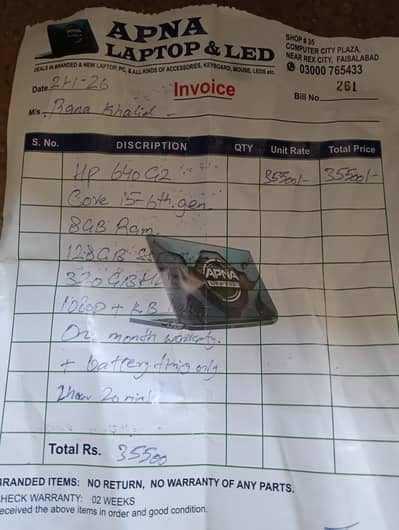 APNA
LAPTOP & LED
DEALS IN BRANDED & NEW LAPTOP, PC, & ALL KINDS OF ACCESSORIES, KEYBOARD, MOUSE, LEDS etc.
SHOP # 35
COMPUTER CITY PLAZA,
NEAR REX CITY, FAISALABAD
03000 765433
Date 21-1-26
Invoice
Bill No. 261
M/s. Rana Khalid
S. No. DISCRIPTION QTY Unit Rate Total Price
HP 640 G2 35500/- 35500/-
Core i5-6th.gen.
8GB Ram.
128GB
320GB
APNA
LAPTOP
+ KB
One month warranty.
+ battery timing only
1 hour 20 mint
Total Rs. 35500
BRANDED ITEMS: NO RETURN, NO WARRANTY OF ANY PARTS.
CHECK WARRANTY: 02 WEEKS
received the above items in order and good condition.